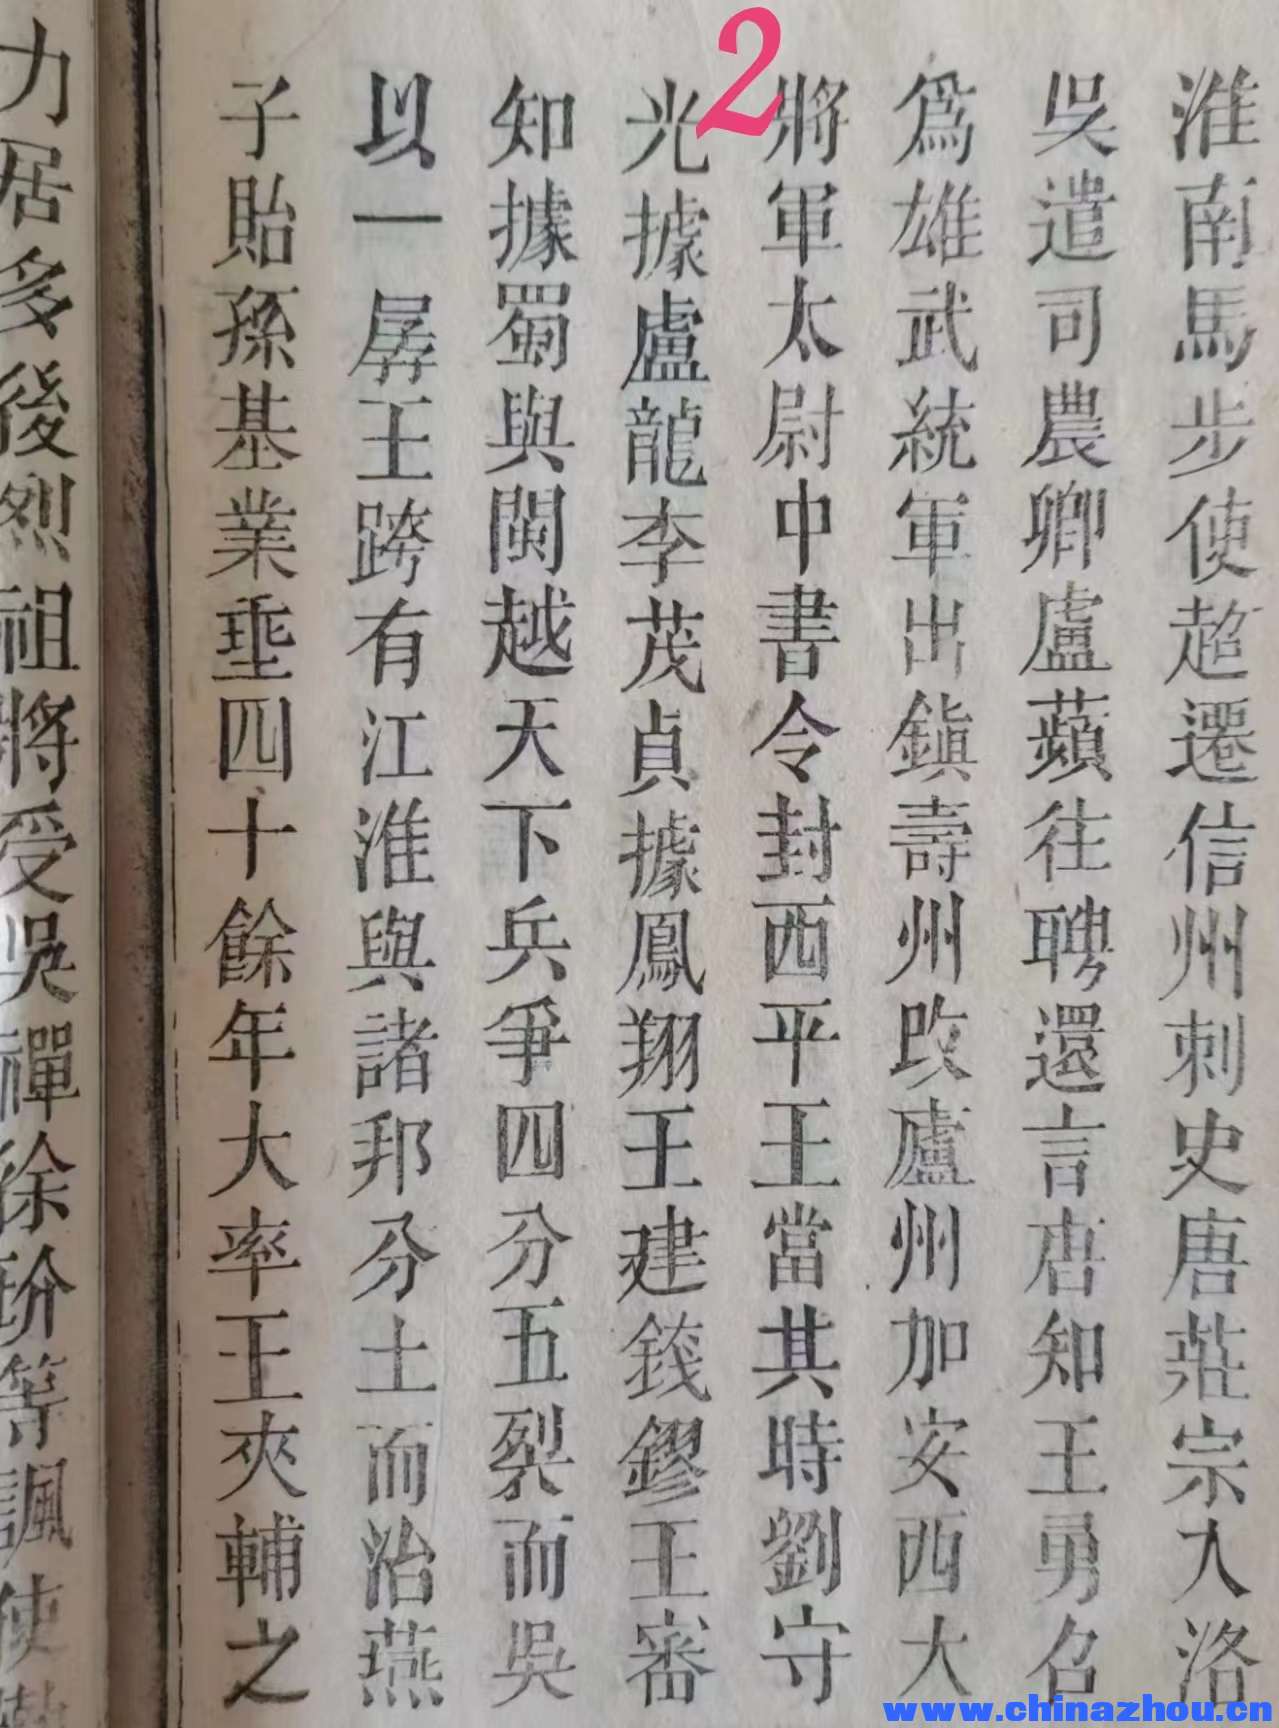 2
淮南馬步使超遷信州刺史唐莊宗入洛
吳遣司農卿盧蘋往聘還言唐知王勇名
爲雄武統軍出鎭壽州改廬州加安西大
將軍太尉中書令封西平王當其時劉守
光據盧龍李茂貞據鳳翔王建錢鏐王審
知據蜀與閩越天下兵爭四分五裂而吳
以一孱王跨有江淮與諸邦分土而治燕
子貽孫基業垂四十餘年大率王夾輔之
力居多後烈祖將受吳禪徐玠等諷使
www.chinazhou.cn